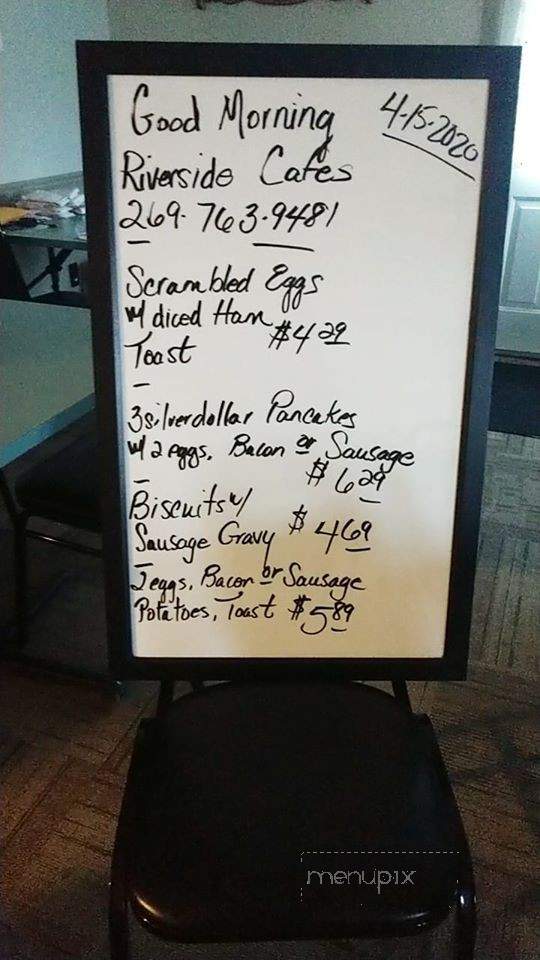 Good Morning
4-15-2020
Riverside Cafes
269-763-9481
Scrambled Eggs
w/ diced Ham
$4 29
Toast
3 silverdollar Pancakes
w/ 2 eggs, Bacon or Sausage
$6 29
Biscuits w/
Sausage Gravy $4 69
2 eggs, Bacon or Sausage
Potatoes, Toast $5 89
menupix